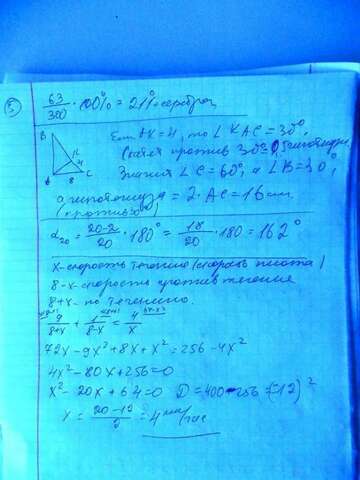 63/300 · 100% = 21% серебра
B
K
4
8 C
Если AK = 4, то ∠ KAC = 30°,
против 30°
Значит ∠C = 60°, а ∠B = 30°,
гипотенуза = 2 · AC = 16 см
α₂₀ = (20-2)/20 · 180° = 18/20 · 180 = 162°
x - скорость течения (скорость плота)
8-x - скорость против течения
8+x - по течению.
9/(8+x) + 1/(8-x) = 4/x
72x - 9x² + 8x + x² = 256 - 4x²
4x² - 80x + 256 = 0
x² - 20x + 64 = 0 D = 400 - 256 =
x = (20-12)/2 = 4 км/час